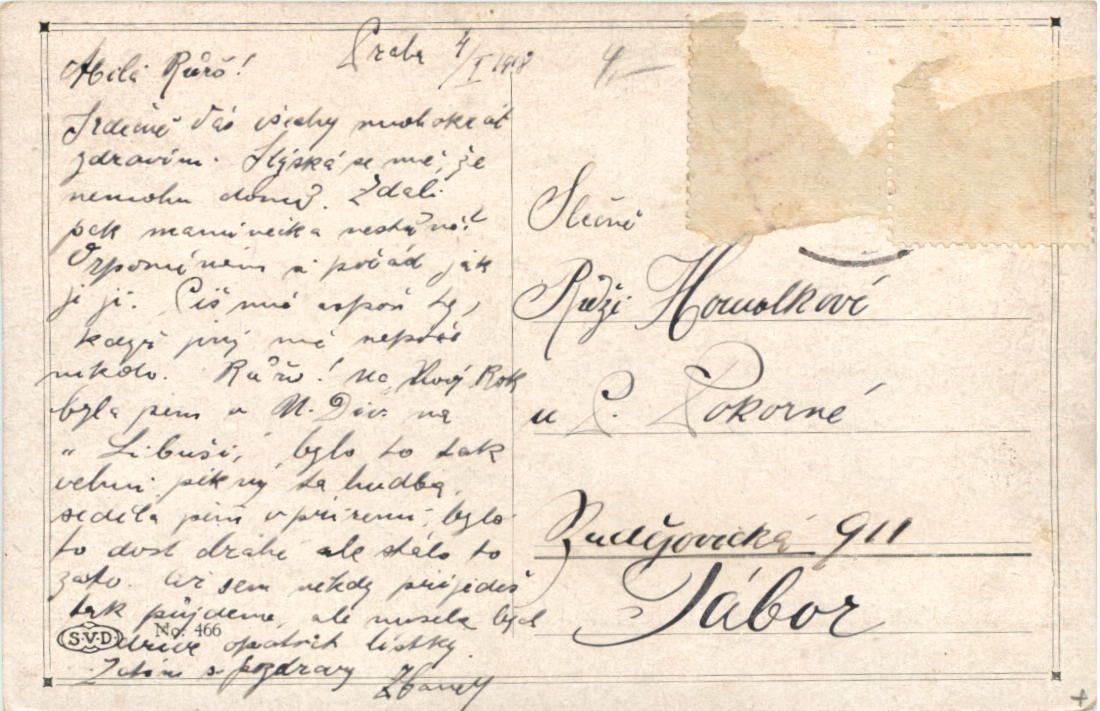 Praha 4/I 1918
4,—
Milá Růžo!
Srdečně Vás všechny mnohokrát
zdravím. Stýská se mě, že
nemohu domů. Zdali
pak maminečka nestůně?
Vzpomínám si pořád, jak
je jí. Piš mně aspoň ty,
když jiný mě nepíše
nikdo. Růžo! Na Nový Rok
byla jsem v N. Div. na
"Libuši", bylo to tak
velmi pěkný ta hudba,
seděla jsem v přízemí, bylo
to dost drahé ale stálo to
zato. Až sem někdy přijedeš
tak půjdeme, ale musela bych
dříve opatřit lístky.
Zatím s pozdravy
S.V.D. No. 466
Slečně
Růži Homolkové
u P. Pokorné
Budějovická 911
Tábor